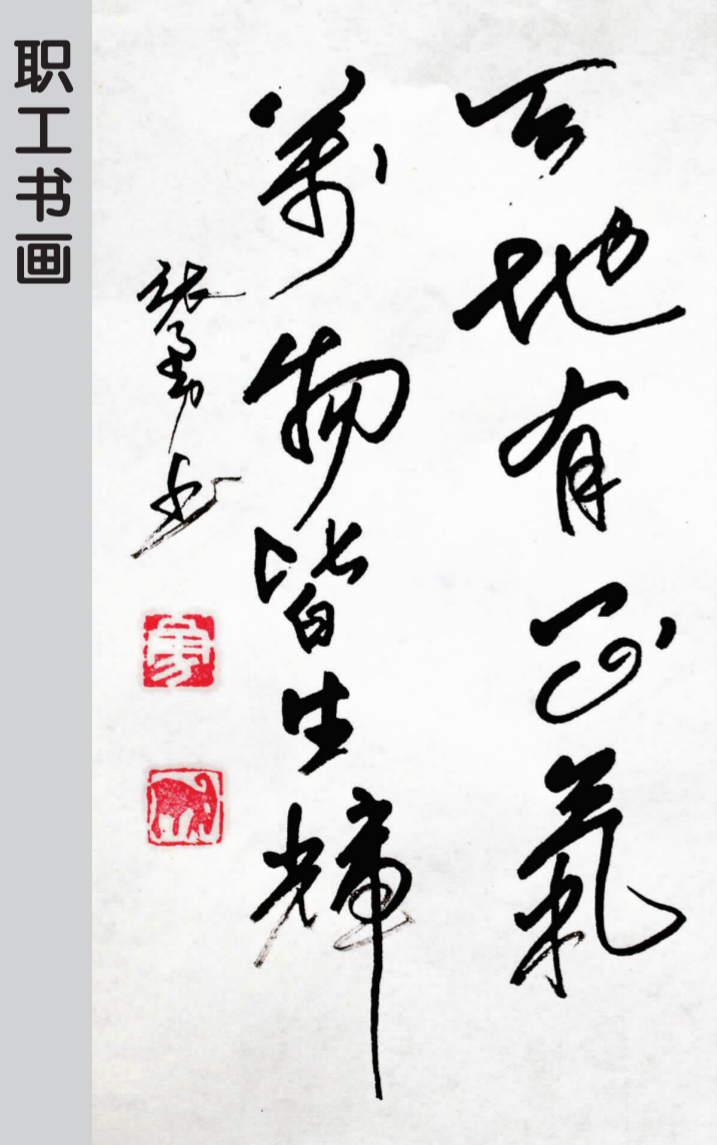 职工书画
天地有正氣
萬物皆生輝
张勇书